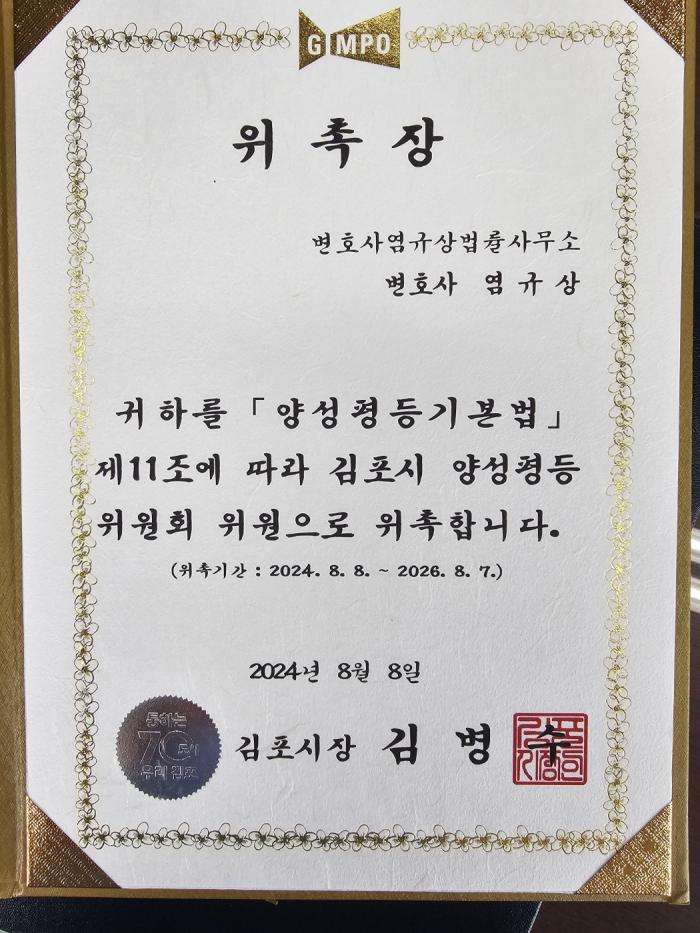 GIMPO
위 촉 장
변호사염규상법률사무소
변호사 염 규 상
귀하를 「양성평등기본법」
제11조에 따라 김포시 양성평등
위원회 위원으로 위촉합니다.
(위촉기간 : 2024. 8. 8. ~ 2026. 8. 7.)
2024년 8월 8일
통하는
70도시
우리 김포
김포시장 김 병 수